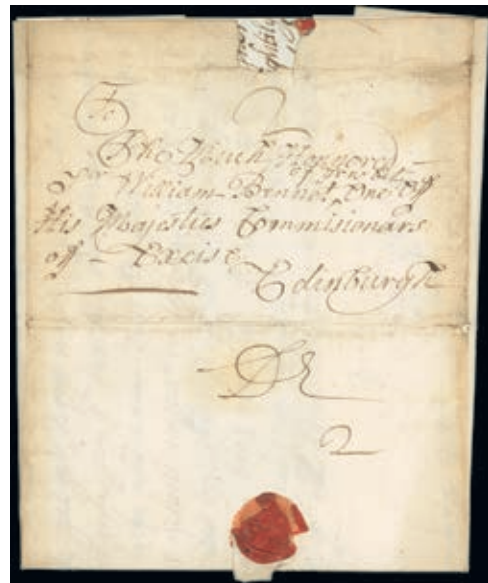 To
The Much Honnored
Sir William Bennet One Off
His Majesties Commisionars
off - Excise
Edinburgh
2